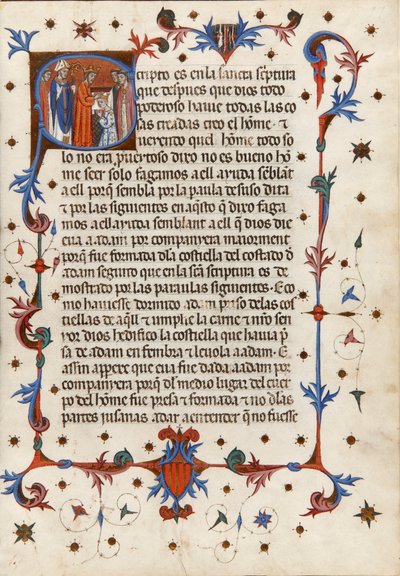 Scripto es en la sancta sc̄ptura
que despues que dios todo
poderoso hauie todas las co
sas creadas creo el hōme ⁊
ueyendo quel hōme todo so
lo no era puertoso dixo no es bueno hō
me seer solo fagamos a ell ayuda sēblāt
a ell por q̄ sembla por la paula desuso dita
⁊ por las siguientes en aq̄sto q̄ dixo faga
mos a ell ayuda semblant a ell q̄ dios die
eua a adam por companyera maiorment
porq̄ fue formada dla costiella del costado d̄
adam seguūt que en la sc̄a scriptura es de
mostrado por las paraulas siguientes. E co
mo hauiesse dormido adam priso de las cos
tiellas de aq̄ll ⁊ implie la carne ⁊ nr̄o sen
yor dios hedifico la costiella que hauia p̄
sa de adam en fembra ⁊ leuola a adam. E
assin appere que eua fue dada a adam por
companyera porq̄ dl medio lugar del cuer
po del hōme fue presa ⁊ formada ⁊ no dlas
partes iusanas. a dar a entender q̄ no fuesse